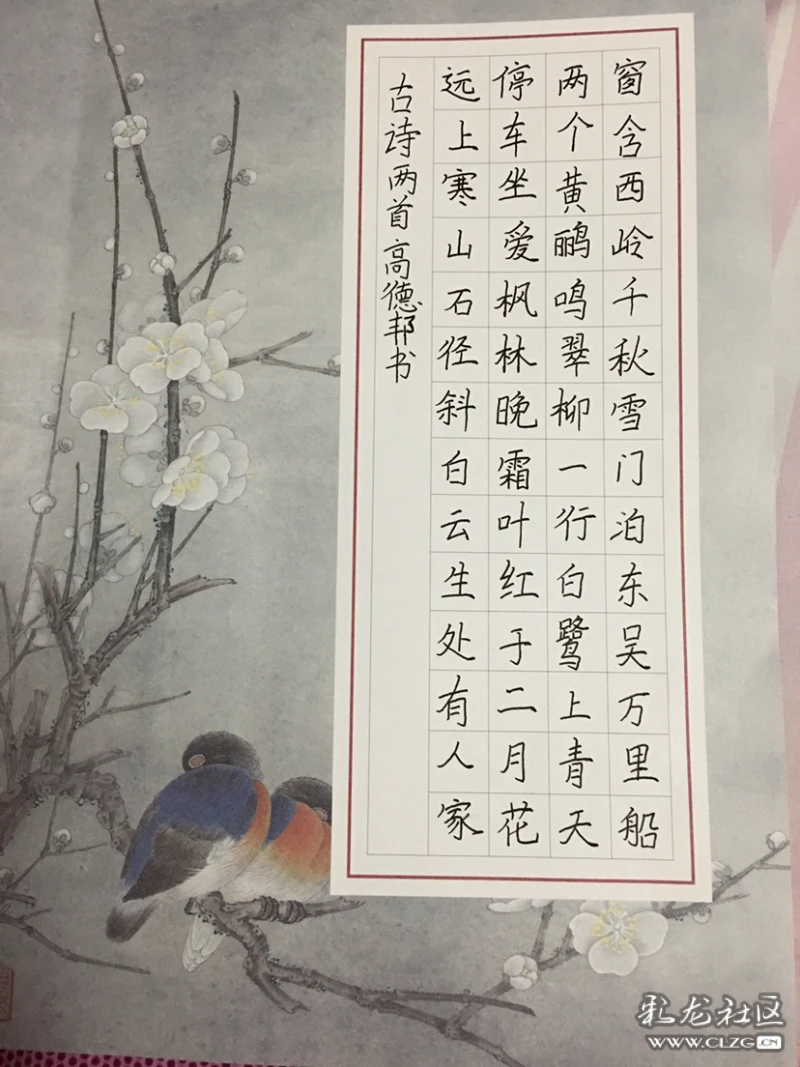 窗含西岭千秋雪门泊东吴万里船
两个黄鹂鸣翠柳一行白鹭上青天
停车坐爱枫林晚霜叶红于二月花
远上寒山石径斜白云生处有人家
古诗两首高德邦书
彩龙社区
WWW.CLZG.CN